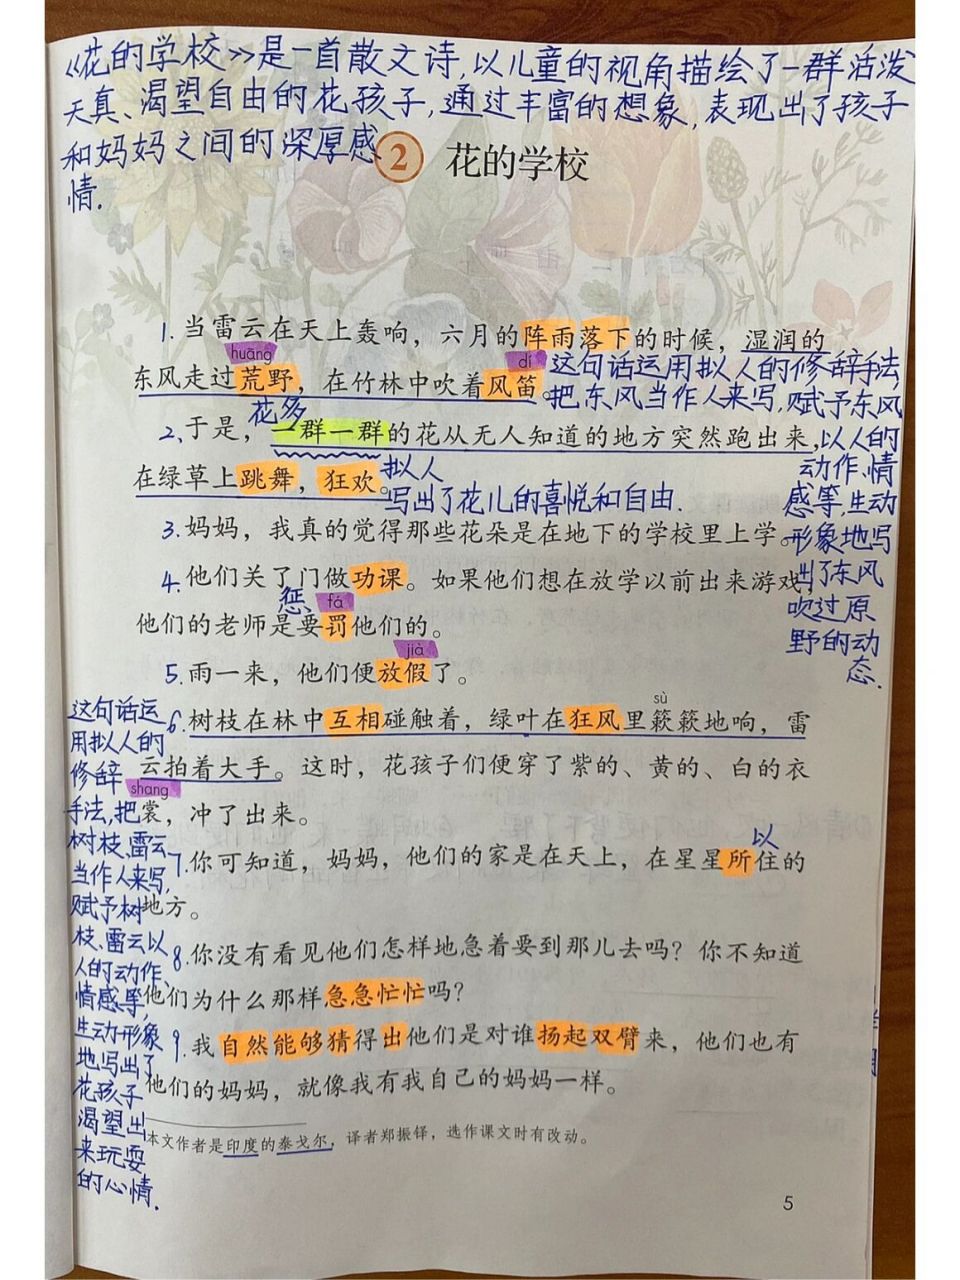 《花的学校》是一首散文诗,以儿童的视角描绘了一群活泼
天真、渴望自由的花孩子,通过丰富的想象,表现出了孩子
和妈妈之间的深厚感
情.
2 花的学校
1.当雷云在天上轰响，六月的阵雨落下的时候，湿润的
huāng
dí
东风走过荒野，在竹林中吹着风笛。
这句话运用拟人的修辞手法,
把东风当作人来写,赋予东风
以人的
动作、情
感等,生动
形象地写
出了东风
吹过原
野的动
态.
花多
2、于是，一群一群的花从无人知道的地方突然跑出来，
在绿草上跳舞，狂欢。
拟人
写出了花儿的喜悦和自由.
3.妈妈，我真的觉得那些花朵是在地下的学校里上学。
4.他们关了门做功课。如果他们想在放学以前出来游戏，
惩、
fá
他们的老师是要罚他们的。
jià
5.雨一来，他们便放假了。
这句话运
用拟人的
修辞
手法,把
树枝、雷云
当作人来写,
赋予树
枝、雷云以
人的动作、
情感等,
生动形象
地写出了
花孩子
渴望出
来玩耍
的心情.
sù
6.树枝在林中互相碰触着，绿叶在狂风里簌簌地响，雷
云拍着大手。这时，花孩子们便穿了紫的、黄的、白的衣
shang
裳，冲了出来。
以
7.你可知道，妈妈，他们的家是在天上，在星星所住的
地方。
8.你没有看见他们怎样地急着要到那儿去吗？你不知道
他们为什么那样急急忙忙吗？
9.我自然能够猜得出他们是对谁扬起双臂来，他们也有
他们的妈妈，就像我有我自己的妈妈一样。
本文作者是印度的泰戈尔，译者郑振铎，选作课文时有改动。
5